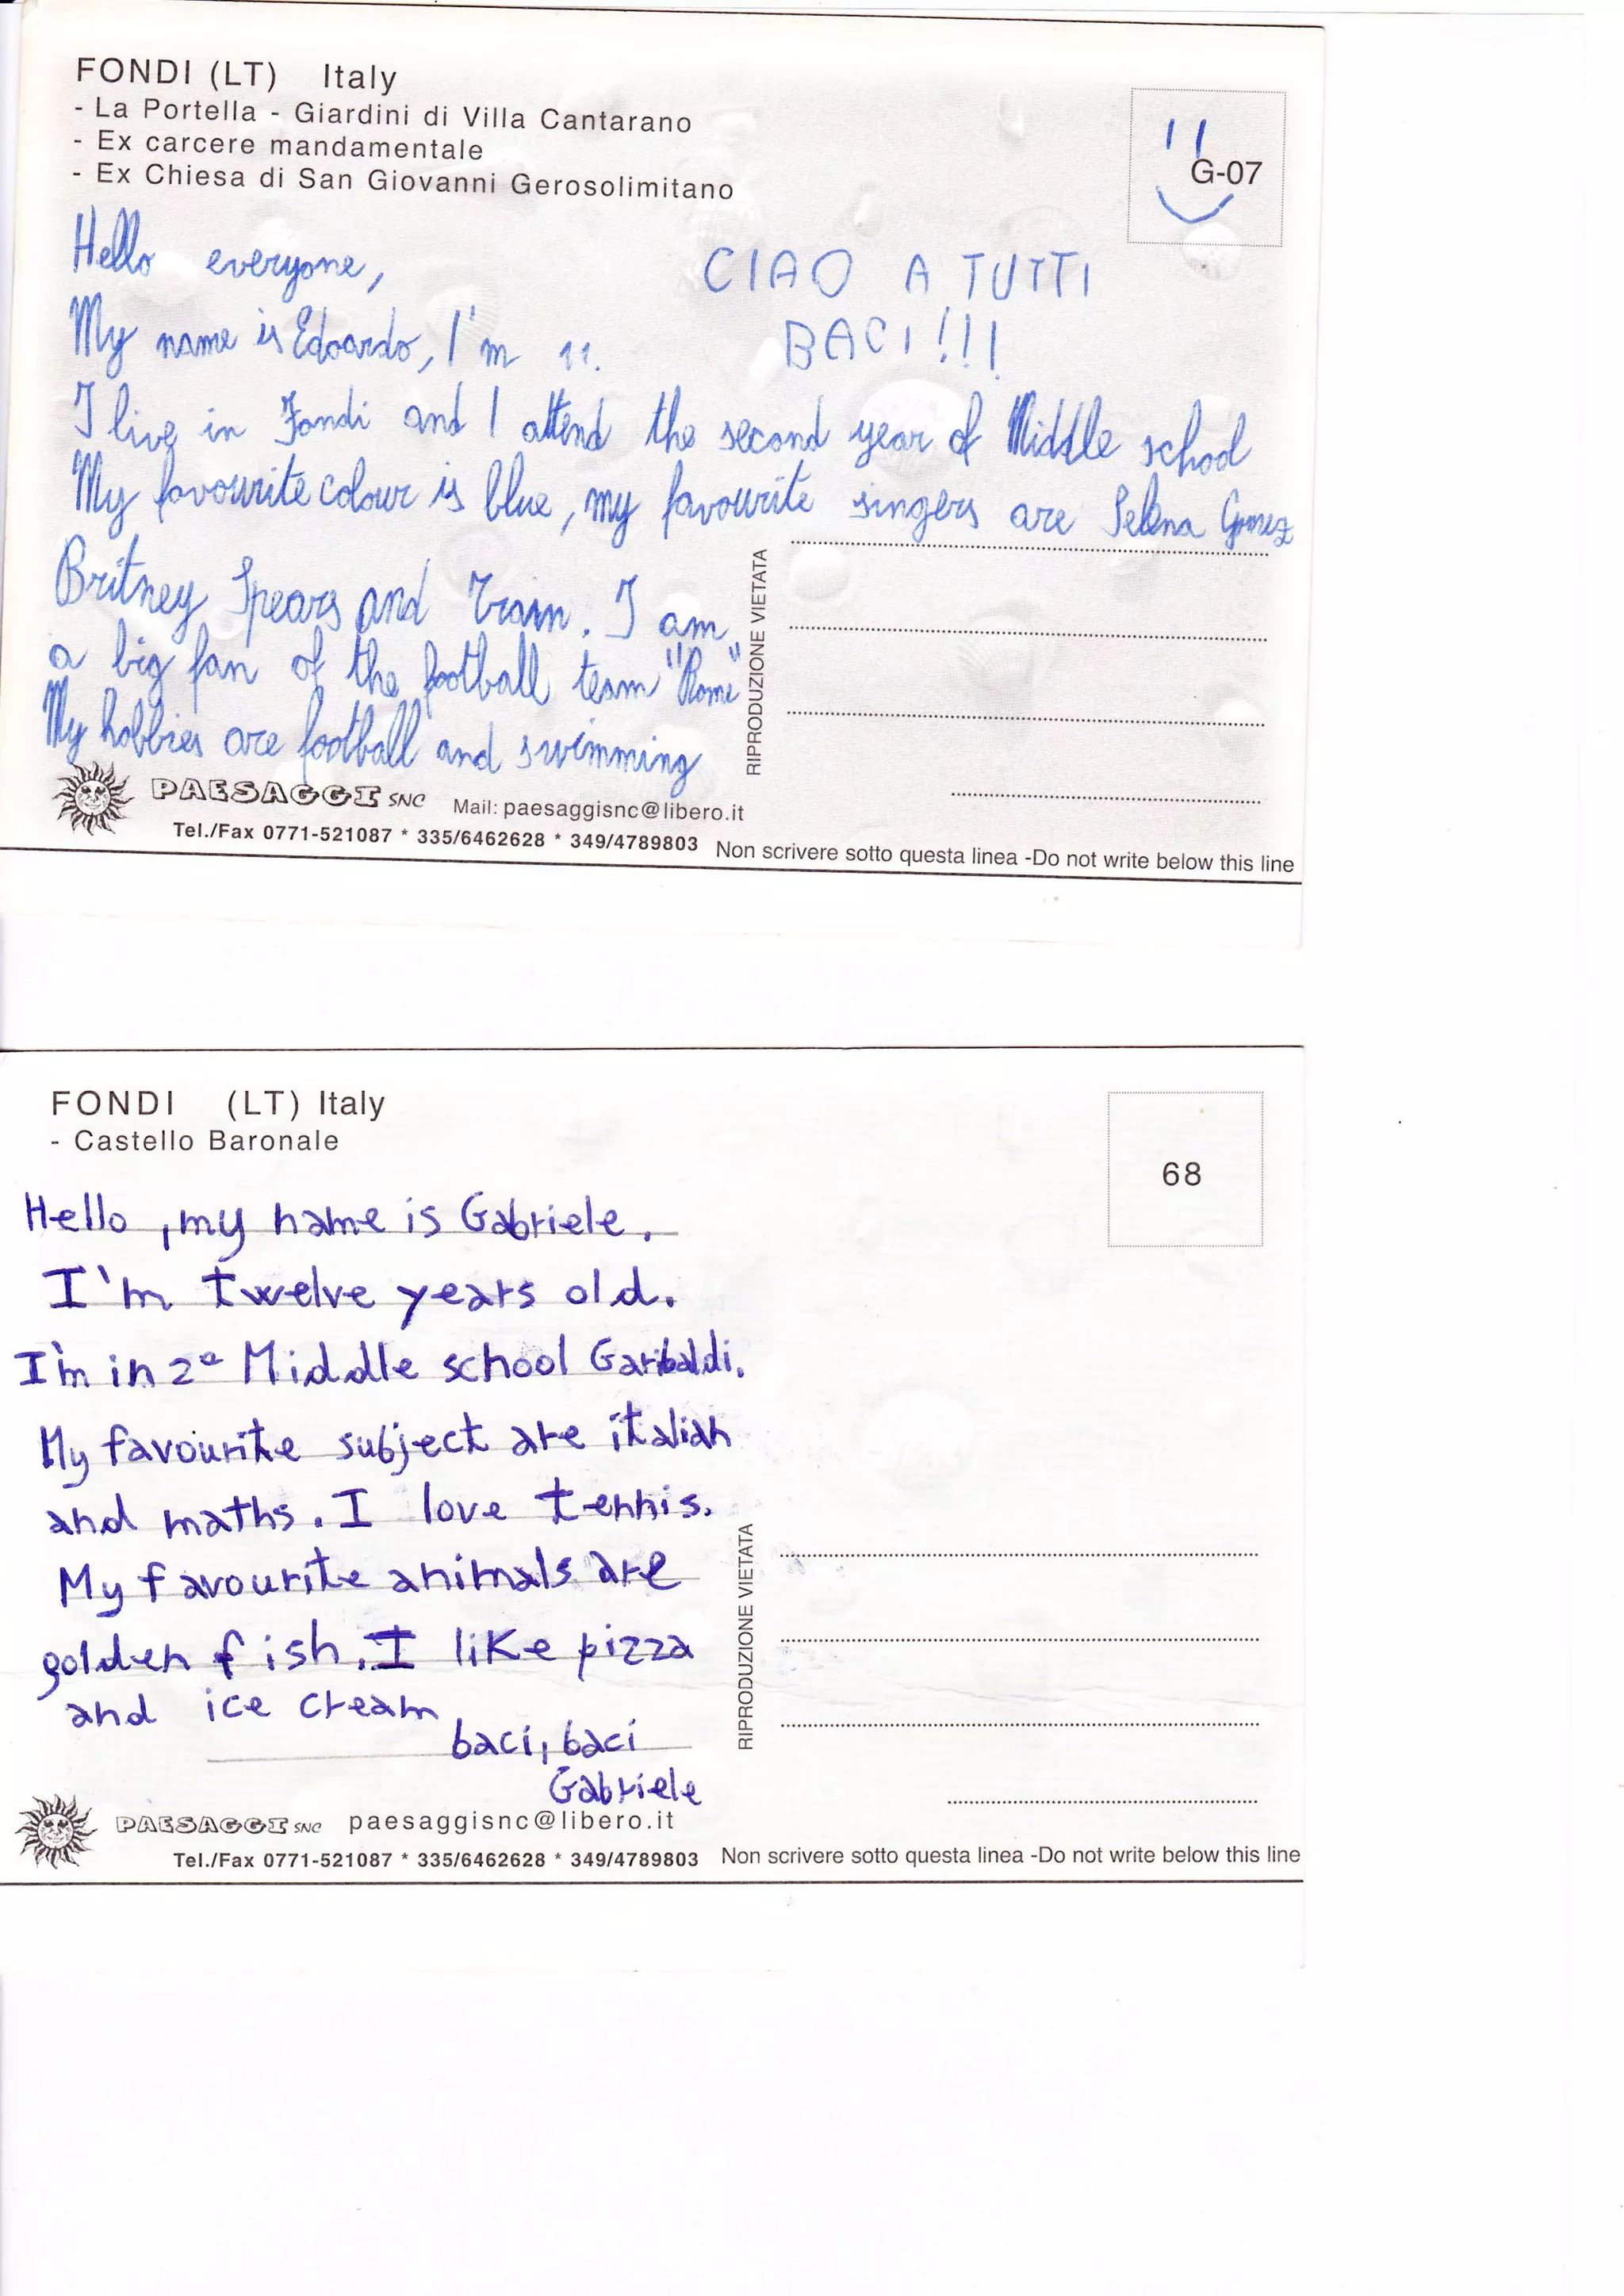 FONDI (LT) Italy
- La Portella - Giardini di Villa Cantarano
- Ex carcere mandamentale
- Ex Chiesa di San Giovanni Gerosolimitano
G-07
Hello everyone,
CIAO A TUTTI
My name is Edoardo, I'm 11.
BACI!!!
I live in Fondi and I attend the second year of Middle school
My favourite colour is blue, my favourite singers are Selena Gomez
Britney Spears and Train. I am
a big fan of the football team "Rome"
My hobbies are football and swimming
RIPRODUZIONE VIETATA
PAESAGGI SNC Mail: paesaggisnc@libero.it
Tel./Fax 0771-521087 * 335/6462628 * 349/4789803 Non scrivere sotto questa linea -Do not write below this line
FONDI (LT) Italy
- Castello Baronale
68
Hello, my name is Gabriele.
I'm twelve years old.
I'm in 2ª Middle school Garibaldi.
My favourite subject are italian
and maths. I love tennis.
My favourite animals are
golden fish. I like pizza
and ice cream
baci, baci
Gabriele
RIPRODUZIONE VIETATA
PAESAGGI SNC paesaggisnc@libero.it
Tel./Fax 0771-521087 * 335/6462628 * 349/4789803 Non scrivere sotto questa linea -Do not write below this line